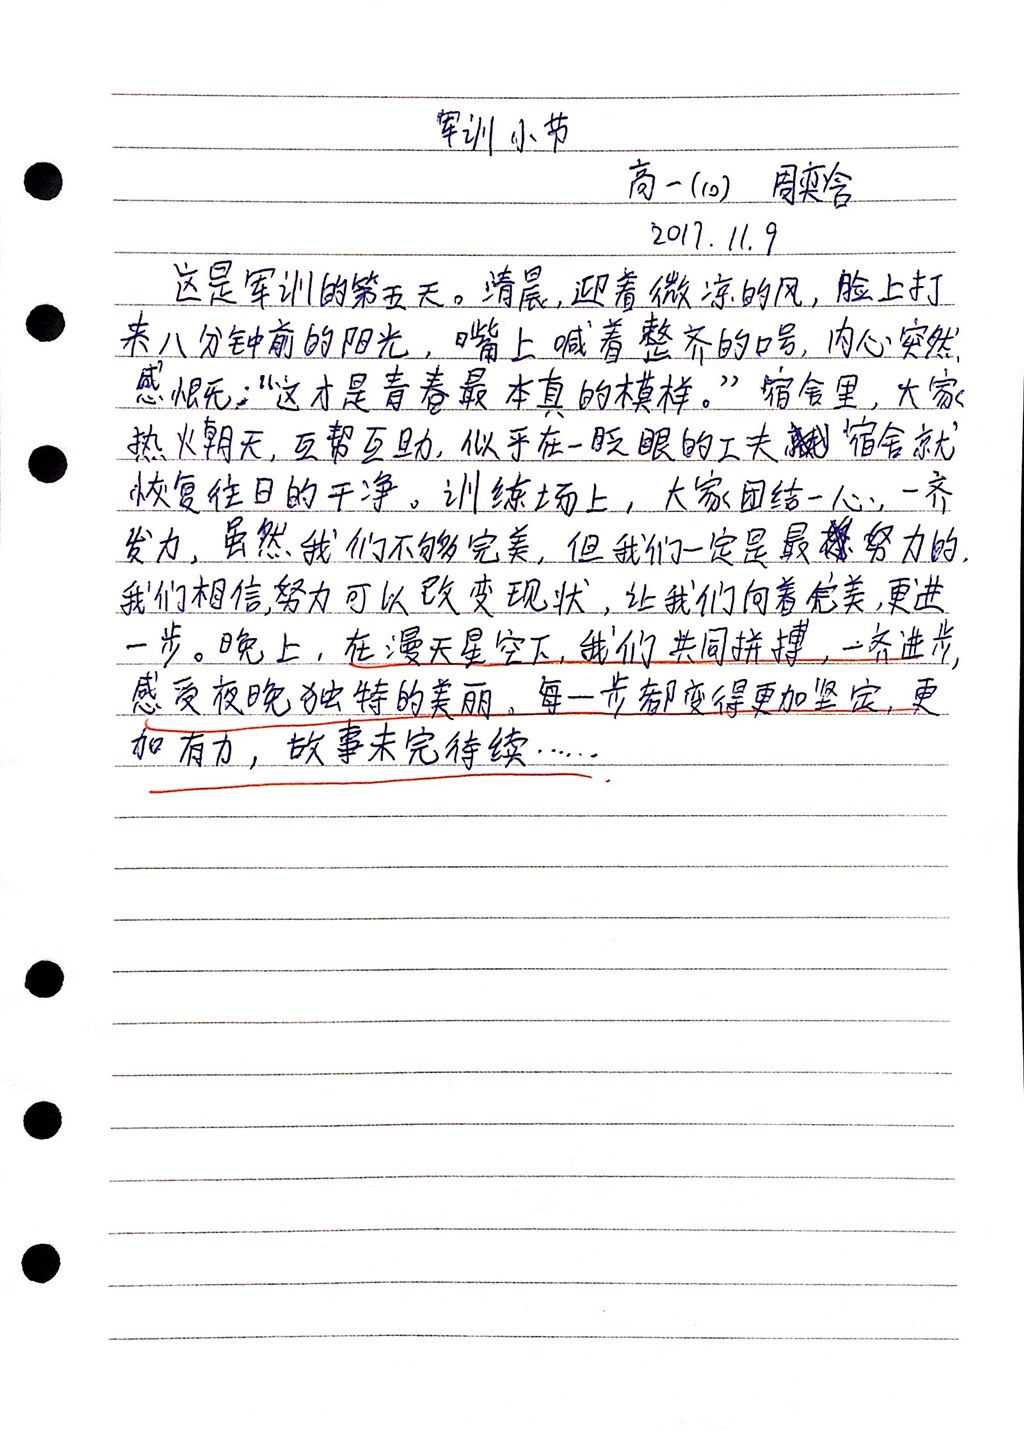 军训小节
高一(10) 周奕含
2017.11.9
这是军训的第五天。清晨,迎着微凉的风,脸上打
来八分钟前的阳光,嘴上喊着整齐的口号,内心突然
感恨无:“这才是青春最本真的模样。”宿舍里,大家
热火朝天,互帮互助,似乎在一眨眼的工夫宿舍就
恢复往日的干净。训练场上,大家团结一心,一齐
发力,虽然我们不够完美,但我们一定是最努力的,
我们相信,努力可以改变现状,让我们向着完美,更进
一步。晚上,在漫天星空下,我们共同拼搏,一齐进步,
感受夜晚独特的美丽。每一步都变得更加坚定,更
加有力,故事未完待续……